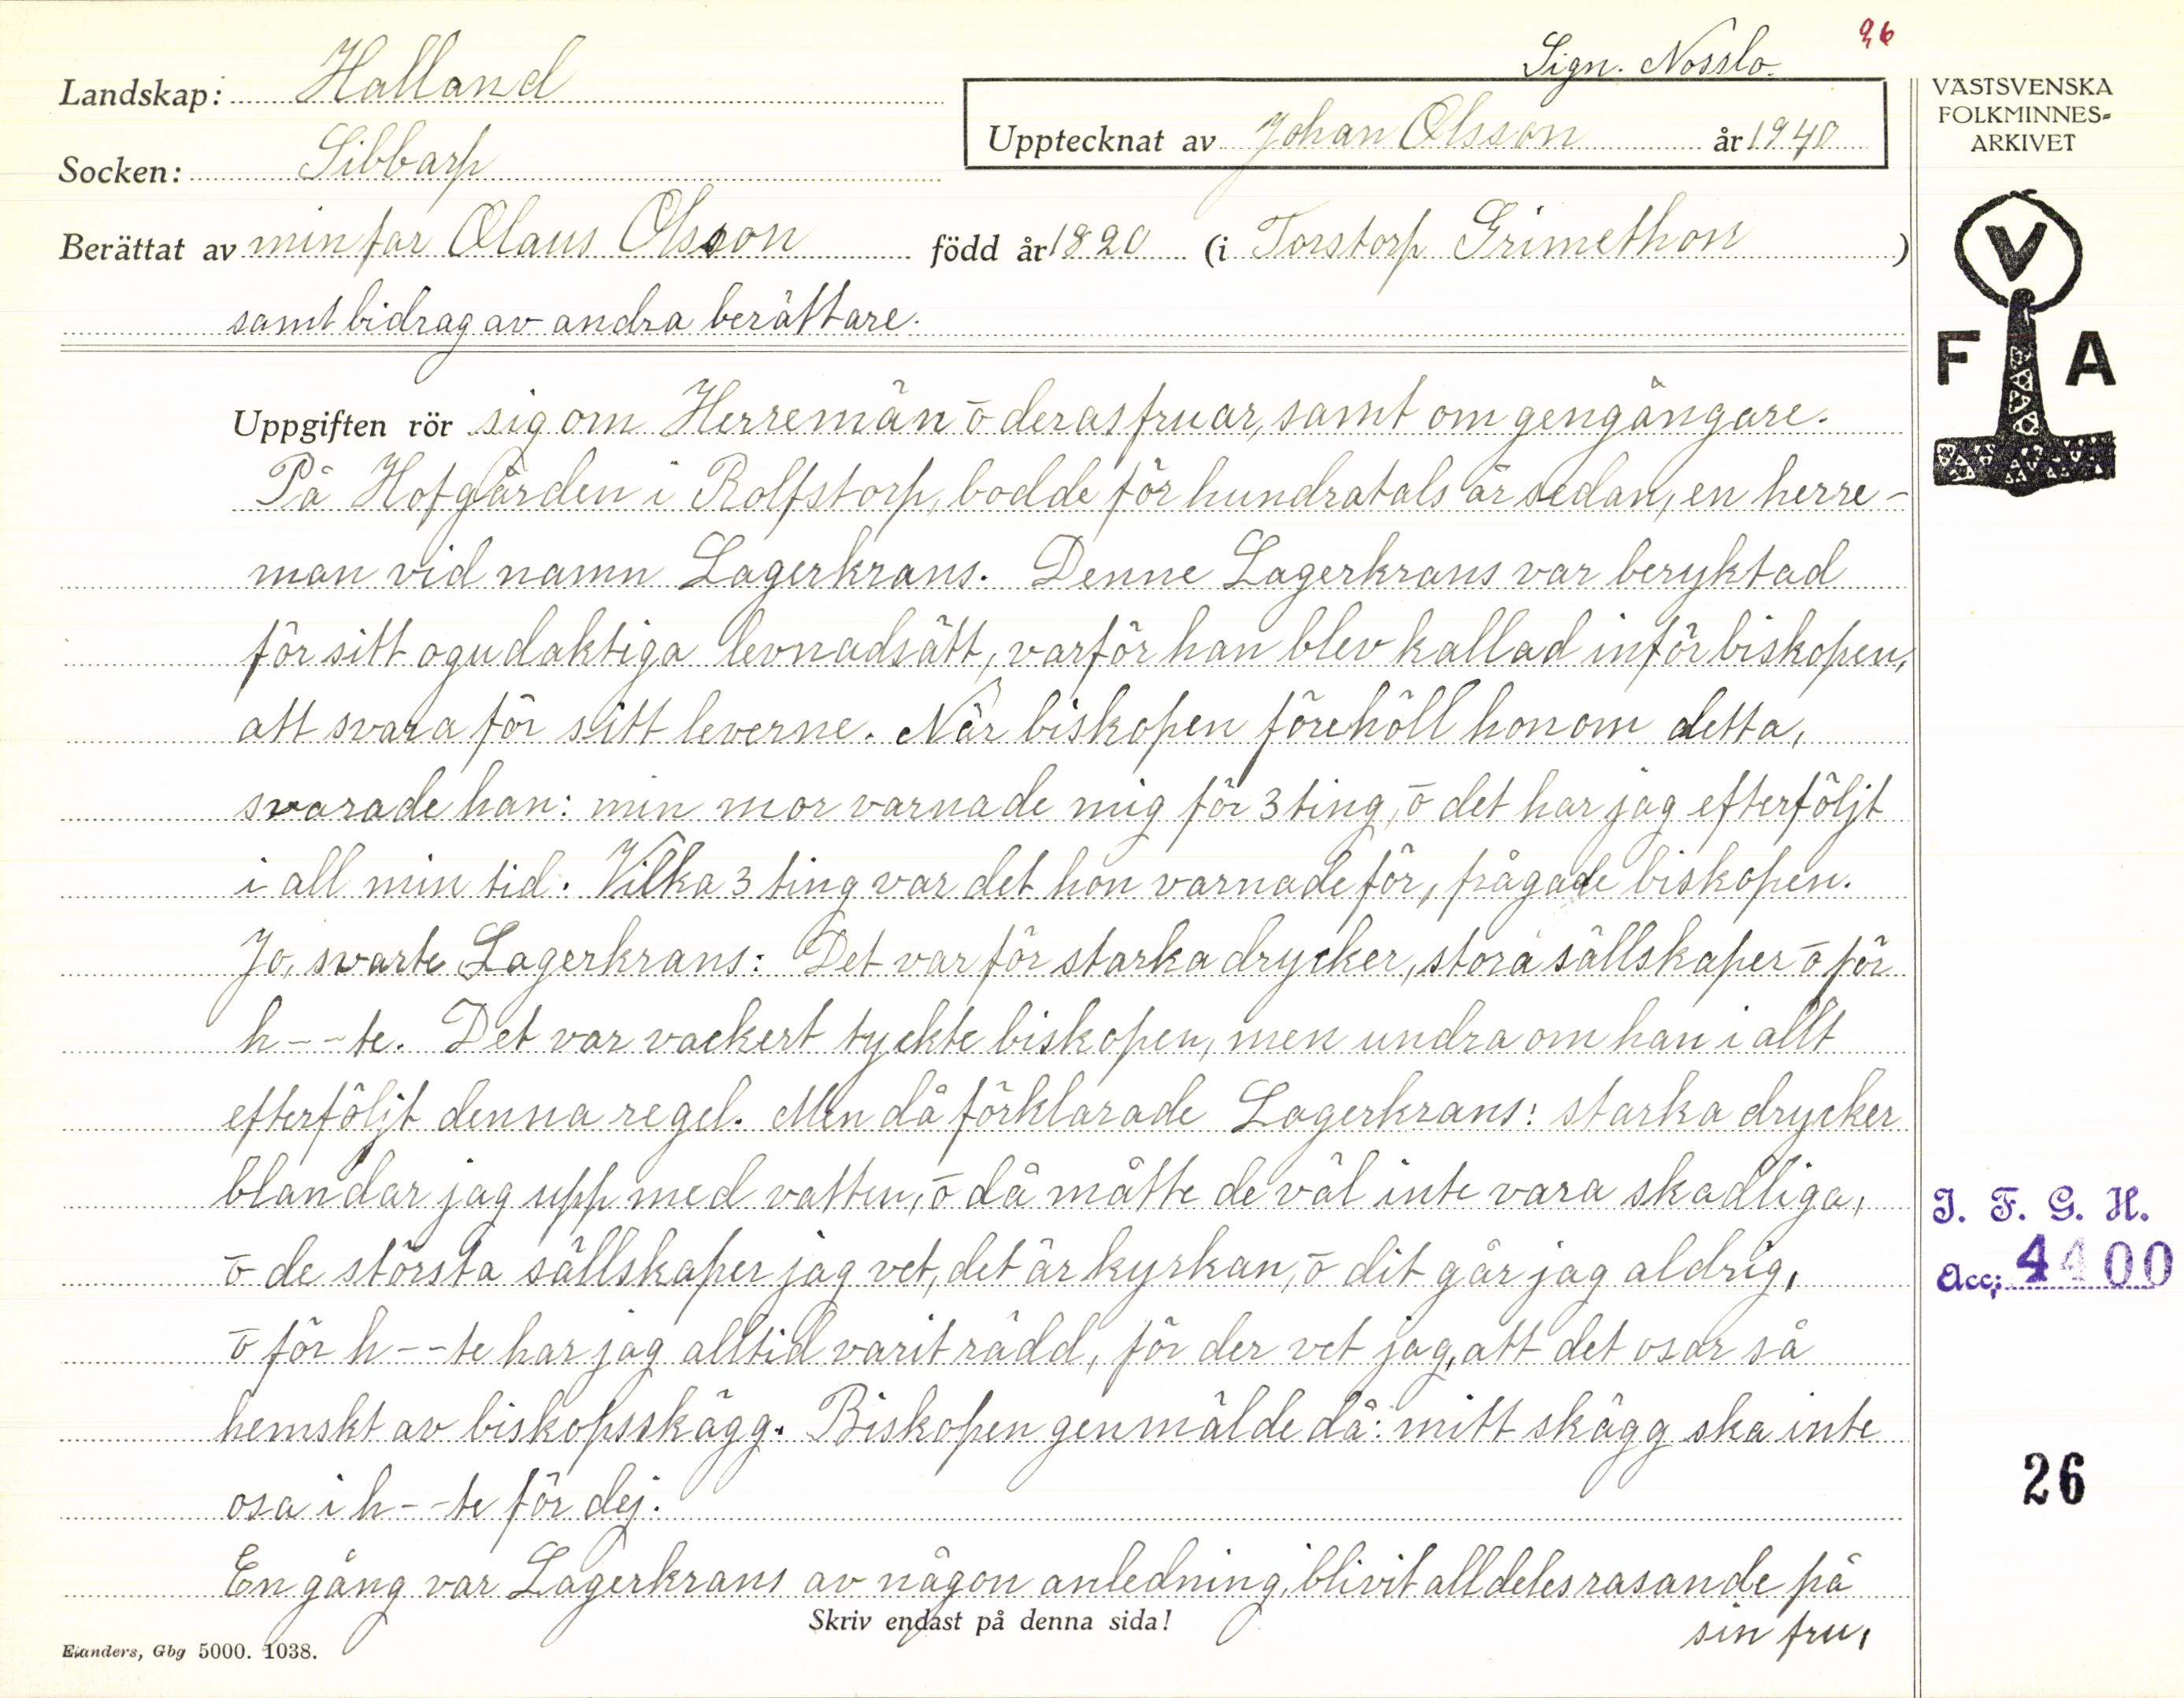 Sign. Nosslo.
96
Landskap: Halland
Upptecknat av Johan Olsson år 1940
Socken: Sibbarp
Berättat av min far Olaus Olsson född år 1820 (i Torstorp Grimethon)
samt bidrag av andra berättare.
Uppgiften rör sig om Herremän ō deras fruar, samt om gengångare.
På Hofgården i Rolfstorp, bodde för hundratals år sedan, en herre-
man vid namn Lagerkrans. Denne Lagerkrans var beryktad
för sitt ogudaktiga levnadsätt, varför han blev kallad inför biskopen,
att svara för sitt leverne. När biskopen förehöll honom detta,
svarade han: min mor varnade mig för 3 ting, ō det har jag efterföljt
i all min tid. Vilka 3 ting var det hon varnade för, frågade biskopen.
Jo, svarte Lagerkrans: Det var för starka drycker, stora sällskaper ō för
h--te. Det var vackert tyckte biskopen, men undra om han i allt
efterföljt denna regel. Men då förklarade Lagerkrans: starka drycker
blandar jag upp med vatten, ō då måtte de väl inte vara skadliga,
ō de största sällskaper jag vet, det är kyrkan, ō dit går jag aldrig,
ō för h--te har jag alltid varit rädd, för der vet jag, att det osar så
hemskt av biskopsskägg. Biskopen genmälde då: mitt skägg ska inte
osa i h--te för dej.
En gång var Lagerkrans av någon anledning, blivit alldeles rasande på
sin fru,
Skriv endast på denna sida!
Elanders, Gbg 5000. 1038.
VÄSTSVENSKA
FOLKMINNES-
ARKIVET
V
F A
I. F. G. H.
Acc; 4400
26